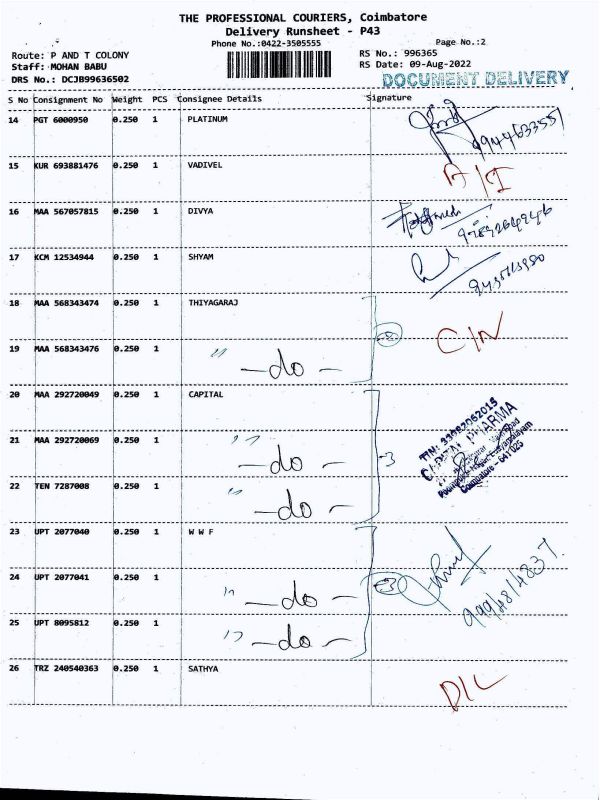 THE PROFESSIONAL COURIERS, Coimbatore
Delivery Runsheet - P43
Phone No.:0422-3505555
Page No.:2
Route: P AND T COLONY
RS No.: 996365
Staff: MOHAN BABU
RS Date: 09-Aug-2022
DRS No.: DCJB99636502
DOCUMENT DELIVERY
S No Consignment No Weight PCS Consignee Details Signature
14 PGT 6000950 0.250 1 PLATINUM
9944633551
15 KUR 693881476 0.250 1 VADIVEL
16 MAA 567057815 0.250 1 DIVYA
17 KCM 12534944 0.250 1 SHYAM
18 MAA 568343474 0.250 1 THIYAGARAJ
C/N
19 MAA 568343476 0.250 1 " - do -
20 MAA 292720049 0.250 1 CAPITAL
TIN: 33082062015
CAPITAL PHARMA
Coimbatore - 641 025
21 MAA 292720069 0.250 1 " - do - 3
22 TEN 7287008 0.250 1 " - do -
23 UPT 2077040 0.250 1 W W F
24 UPT 2077041 0.250 1 " - do - 3
25 UPT 8095812 0.250 1 " - do -
26 TRZ 240540363 0.250 1 SATHYA
D/L